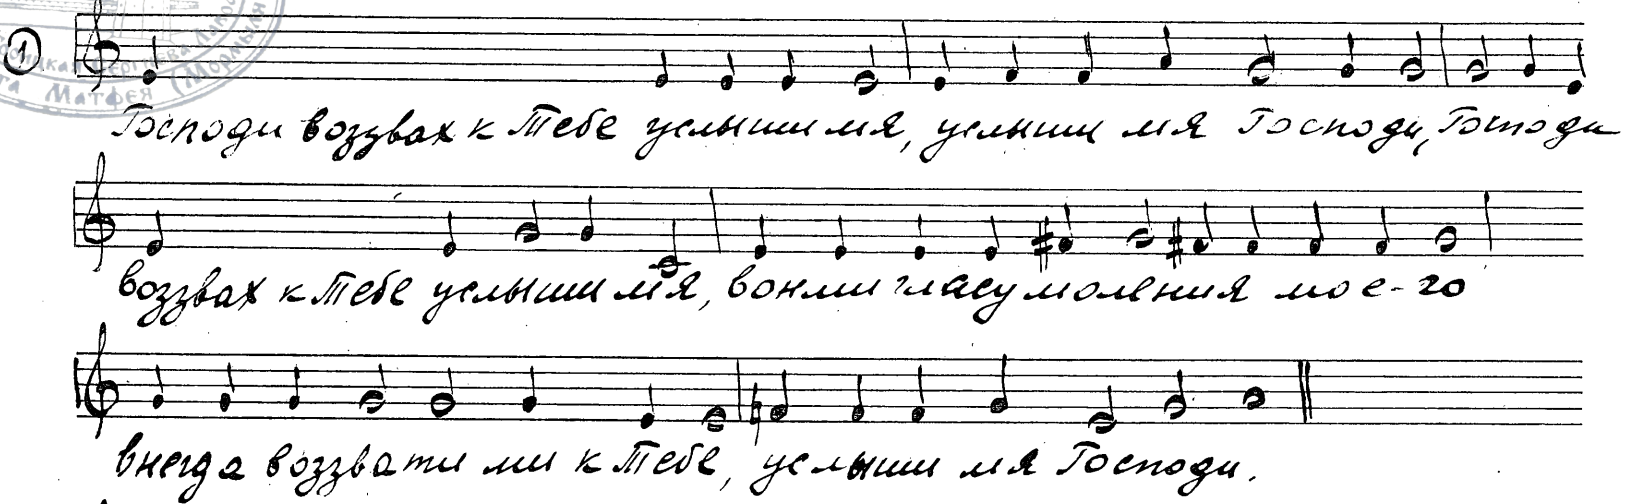 1
Господи воззвах к Тебе услыши мя, услыши мя Господи, Господи
воззвах к Тебе услыши мя, вонми гласу моления мое-го
внегда воззвати ми к Тебе, услыши мя Господи.
Матфея (Мормыля